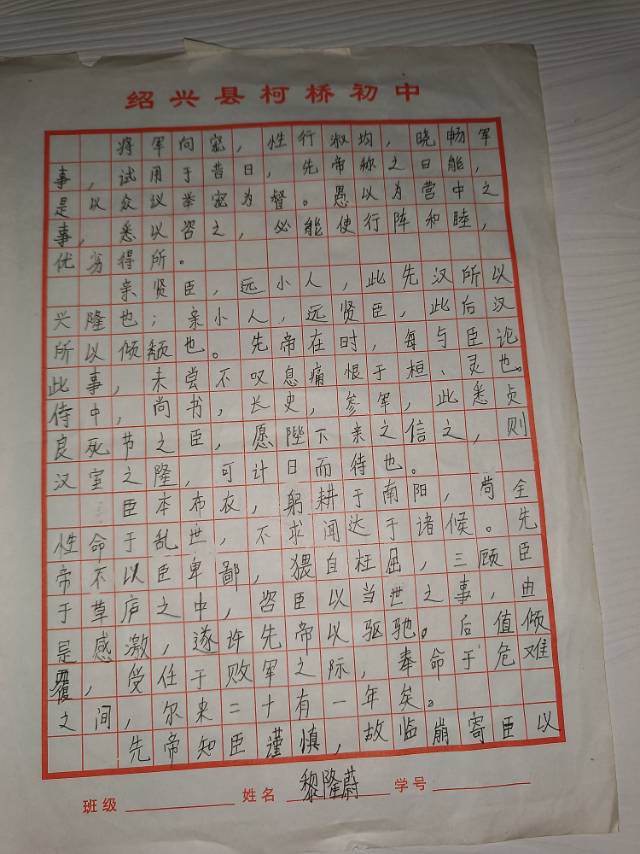 绍兴县柯桥初中
将军向宠，性行淑均，晓畅军
事，试用于昔日，先帝称之曰能，
是以众议举宠为督。愚以为营中之
事，悉以咨之，必能使行阵和睦，
优劣得所。
亲贤臣，远小人，此先汉所以
兴隆也；亲小人，远贤臣，此后汉
所以倾颓也。先帝在时，每与臣论
此事，未尝不叹息痛恨于桓、灵也。
侍中，尚书，长史，参军，此悉贞
良死节之臣，愿陛下亲之信之，则
汉室之隆，可计日而待也。
臣本布衣，躬耕于南阳，尚全
性命于乱世，不求闻达于诸候。先
帝不以臣卑鄙，猥自枉屈，三顾臣
于草庐之中，咨臣以当世之事，由
是感激，遂许先帝以驱驰。后值倾
覆，受任于败军之际，奉命于危难
之间，尔来二十有一年矣。
先帝知臣谨慎，故临崩寄臣以
班级 姓名 黎隆蔚 学号